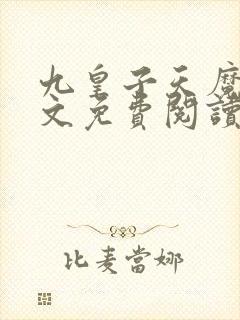 九皇子天魔
文免費閱讀
比麦當娜